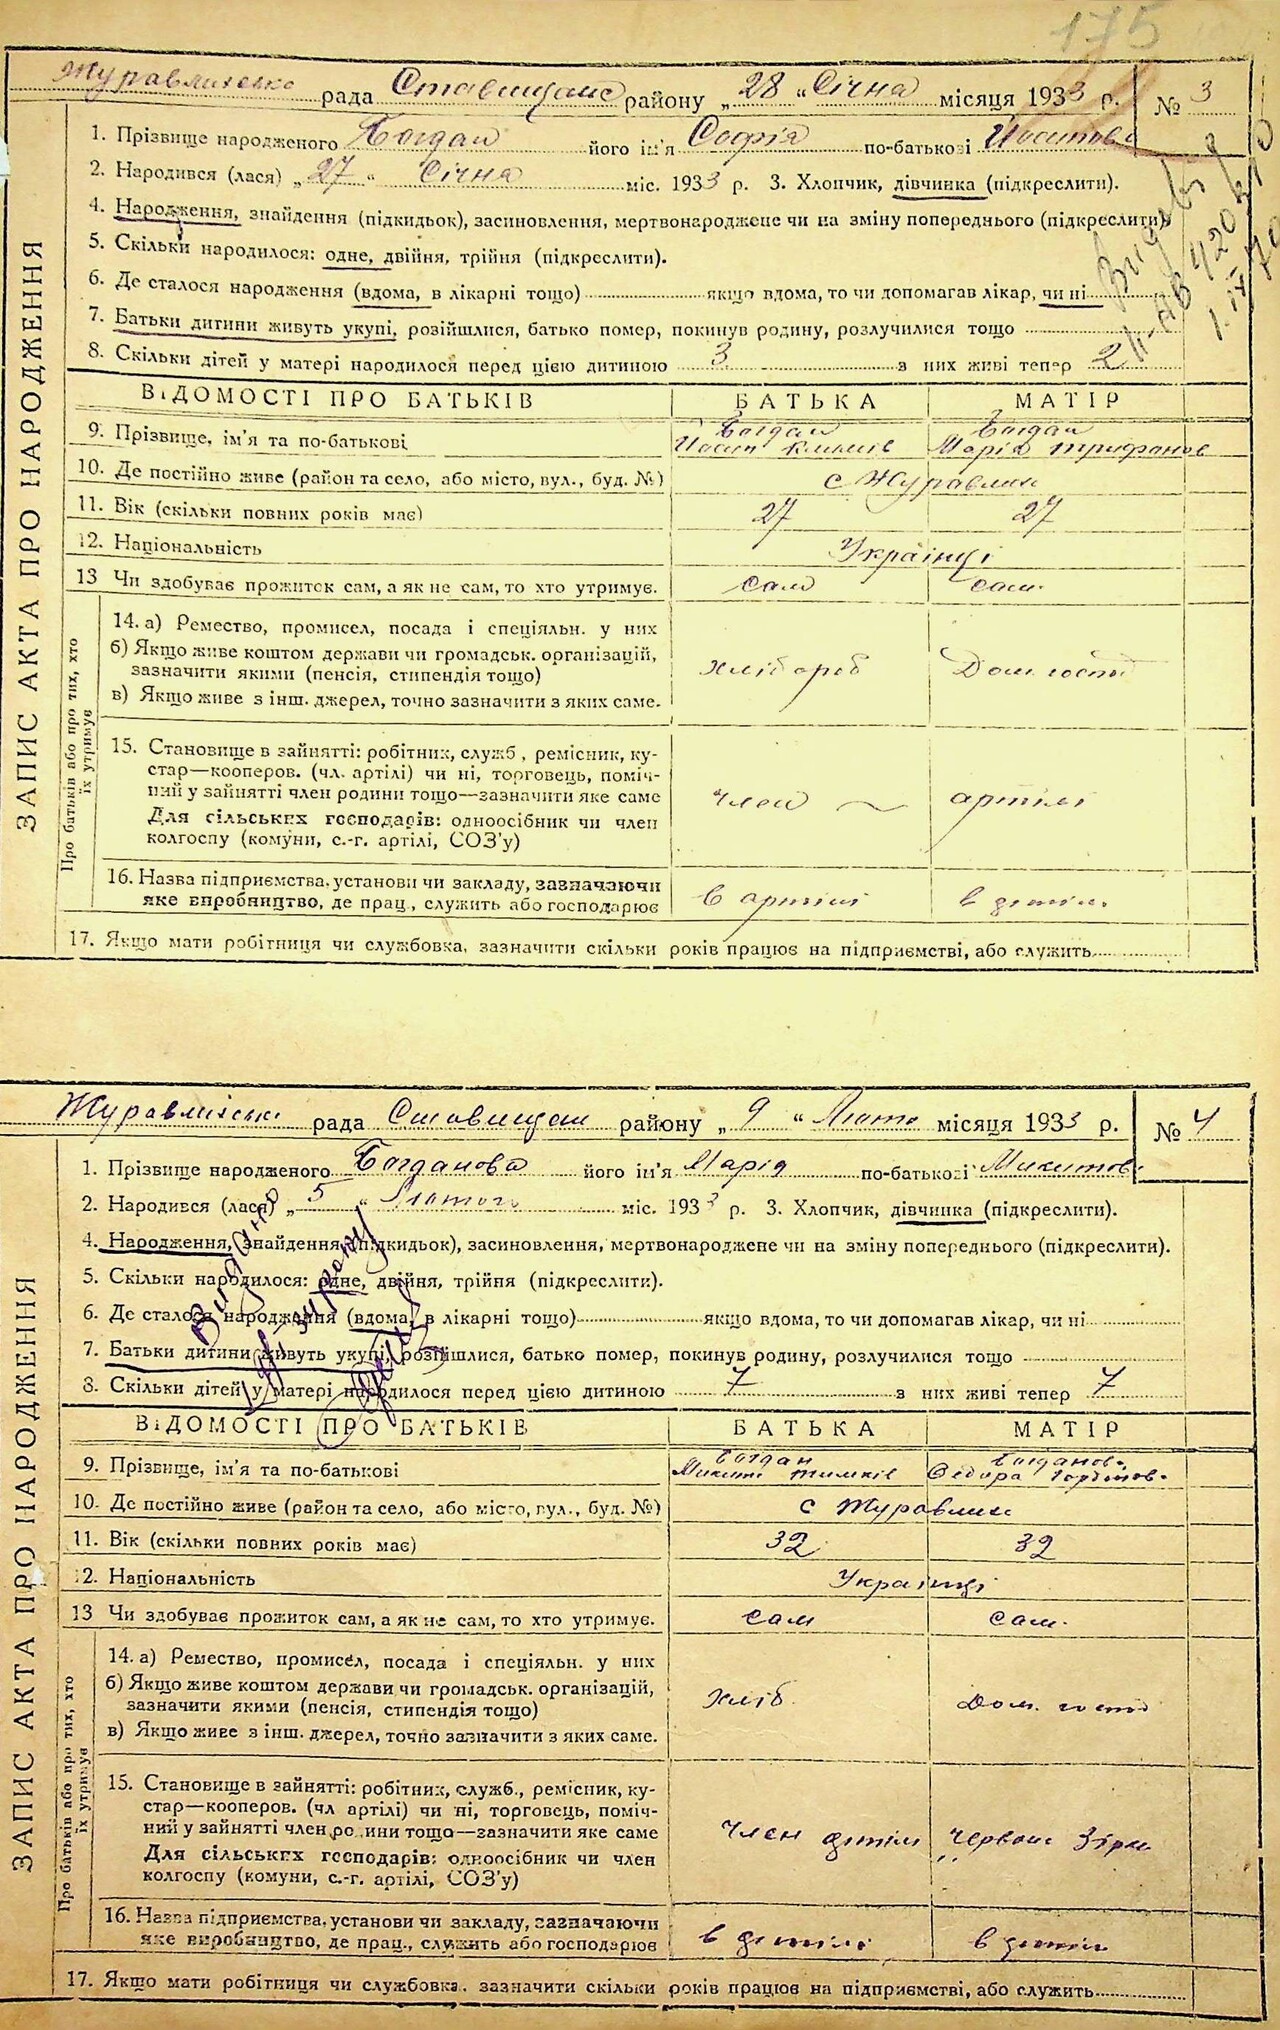 175
Журавлихсько рада Ставищанс району „ 28 “ Січня місяця 1933 р. № 3
1. Прізвище народженого Богдан його ім'я Софія по-батькові Йосипова
2. Народився (лася) „ 27 “ Січня міс. 1933 р. 3. Хлопчик, дівчинка (підкреслити).
4. Народження, знайдення (підкидьок), засиновлення, мертвонароджене чи на зміну попереднього (підкреслити)
5. Скільки народилося: одне, двійня, трійня (підкреслити).
6. Де сталося народження (вдома, в лікарні тощо) якщо вдома, то чи допомагав лікар, чи ні
7. Батьки дитини живуть укупі, розійшлися, батько помер, покинув родину, розлучилися тощо
8. Скільки дітей у матері народилося перед цією дитиною 3 з них живі тепер 2
ВІДОМОСТІ ПРО БАТЬКІВ БАТЬКА МАТІР
9. Прізвище, ім'я та по-батькові Богдан Йосип Климів Богдан Марія Трифонов
10. Де постійно живе (район та село, або місто, вул., буд. №) с Журавлих
11. Вік (скільки повних років має) 27 27
12. Національність Українці
13 Чи здобуває прожиток сам, а як не сам, то хто утримує. сам сам.
14. а) Ремество, промисел, посада і спеціяльн. у них
б) Якщо живе коштом держави чи громадськ. організацій,
зазначити якими (пенсія, стипендія тощо) хлібороб Дом. госпо
в) Якщо живе з інш. джерел, точно зазначити з яких саме.
15. Становище в зайнятті: робітник, служб., ремісник, ку-
стар—кооперов. (чл. артілі) чи ні, торговець, поміч-
ний у зайнятті член родини тощо—зазначити яке саме член артілі
Для сільських господарів: одноосібник чи член
колгоспу (комуни, с.-г. артілі, СОЗ'у)
16. Назва підприємства, установи чи закладу, зазначаючи
яке виробництво, де прац., служить або господарює в артілі в артіл.
17. Якщо мати робітниця чи службовка, зазначити скільки років працює на підприємстві, або служить
ЗАПИС АКТА ПРО НАРОДЖЕННЯ
Про батьків або про тих, хто
їх утримує
Видано
II-АВ 420
1.IX 70
Журавлихськ рада Ставищан району „ 9 “ Лютого місяця 1933 р. № 4
1. Прізвище народженого Богданова його ім'я Марія по-батькові Микитов
2. Народився (лася) „ 5 “ Лютого міс. 1933 р. 3. Хлопчик, дівчинка (підкреслити).
4. Народження, знайдення (підкидьок), засиновлення, мертвонароджене чи на зміну попереднього (підкреслити).
5. Скільки народилося: одне, двійня, трійня (підкреслити).
6. Де сталося народження (вдома, в лікарні тощо) якщо вдома, то чи допомагав лікар, чи ні
7. Батьки дитини живуть укупі, розійшлися, батько помер, покинув родину, розлучилися тощо
8. Скільки дітей у матері народилося перед цією дитиною 7 з них живі тепер 7
ВІДОМОСТІ ПРО БАТЬКІВ БАТЬКА МАТІР
9. Прізвище, ім'я та по-батькові Богдан Микита Тимків Богданов Федора
10. Де постійно живе (район та село, або місто, вул., буд. №) с Журавлих
11. Вік (скільки повних років має) 32 32
12. Національність Українці
13 Чи здобуває прожиток сам, а як не сам, то хто утримує. сам сам.
14. а) Ремество, промисел, посада і спеціяльн. у них
б) Якщо живе коштом держави чи громадськ. організацій,
зазначити якими (пенсія, стипендія тощо) хліб. Дом. госпо
в) Якщо живе з інш. джерел, точно зазначити з яких саме.
15. Становище в зайнятті: робітник, служб., ремісник, ку-
стар—кооперов. (чл артілі) чи ні, торговець, поміч-
ний у зайнятті член родини тощо—зазначити яке саме член артілі червон Зірк
Для сільських господарів: одноосібник чи член
колгоспу (комуни, с.-г. артілі, СОЗ'у)
16. Назва підприємства, установи чи закладу, зазначаючи
яке виробництво, де прац., служить або господарює в артілі в артіл
17. Якщо мати робітниця чи службовка, зазначити скільки років працює на підприємстві, або служить
ЗАПИС АКТА ПРО НАРОДЖЕННЯ
Про батьків або про тих, хто
їх утримує
Видано